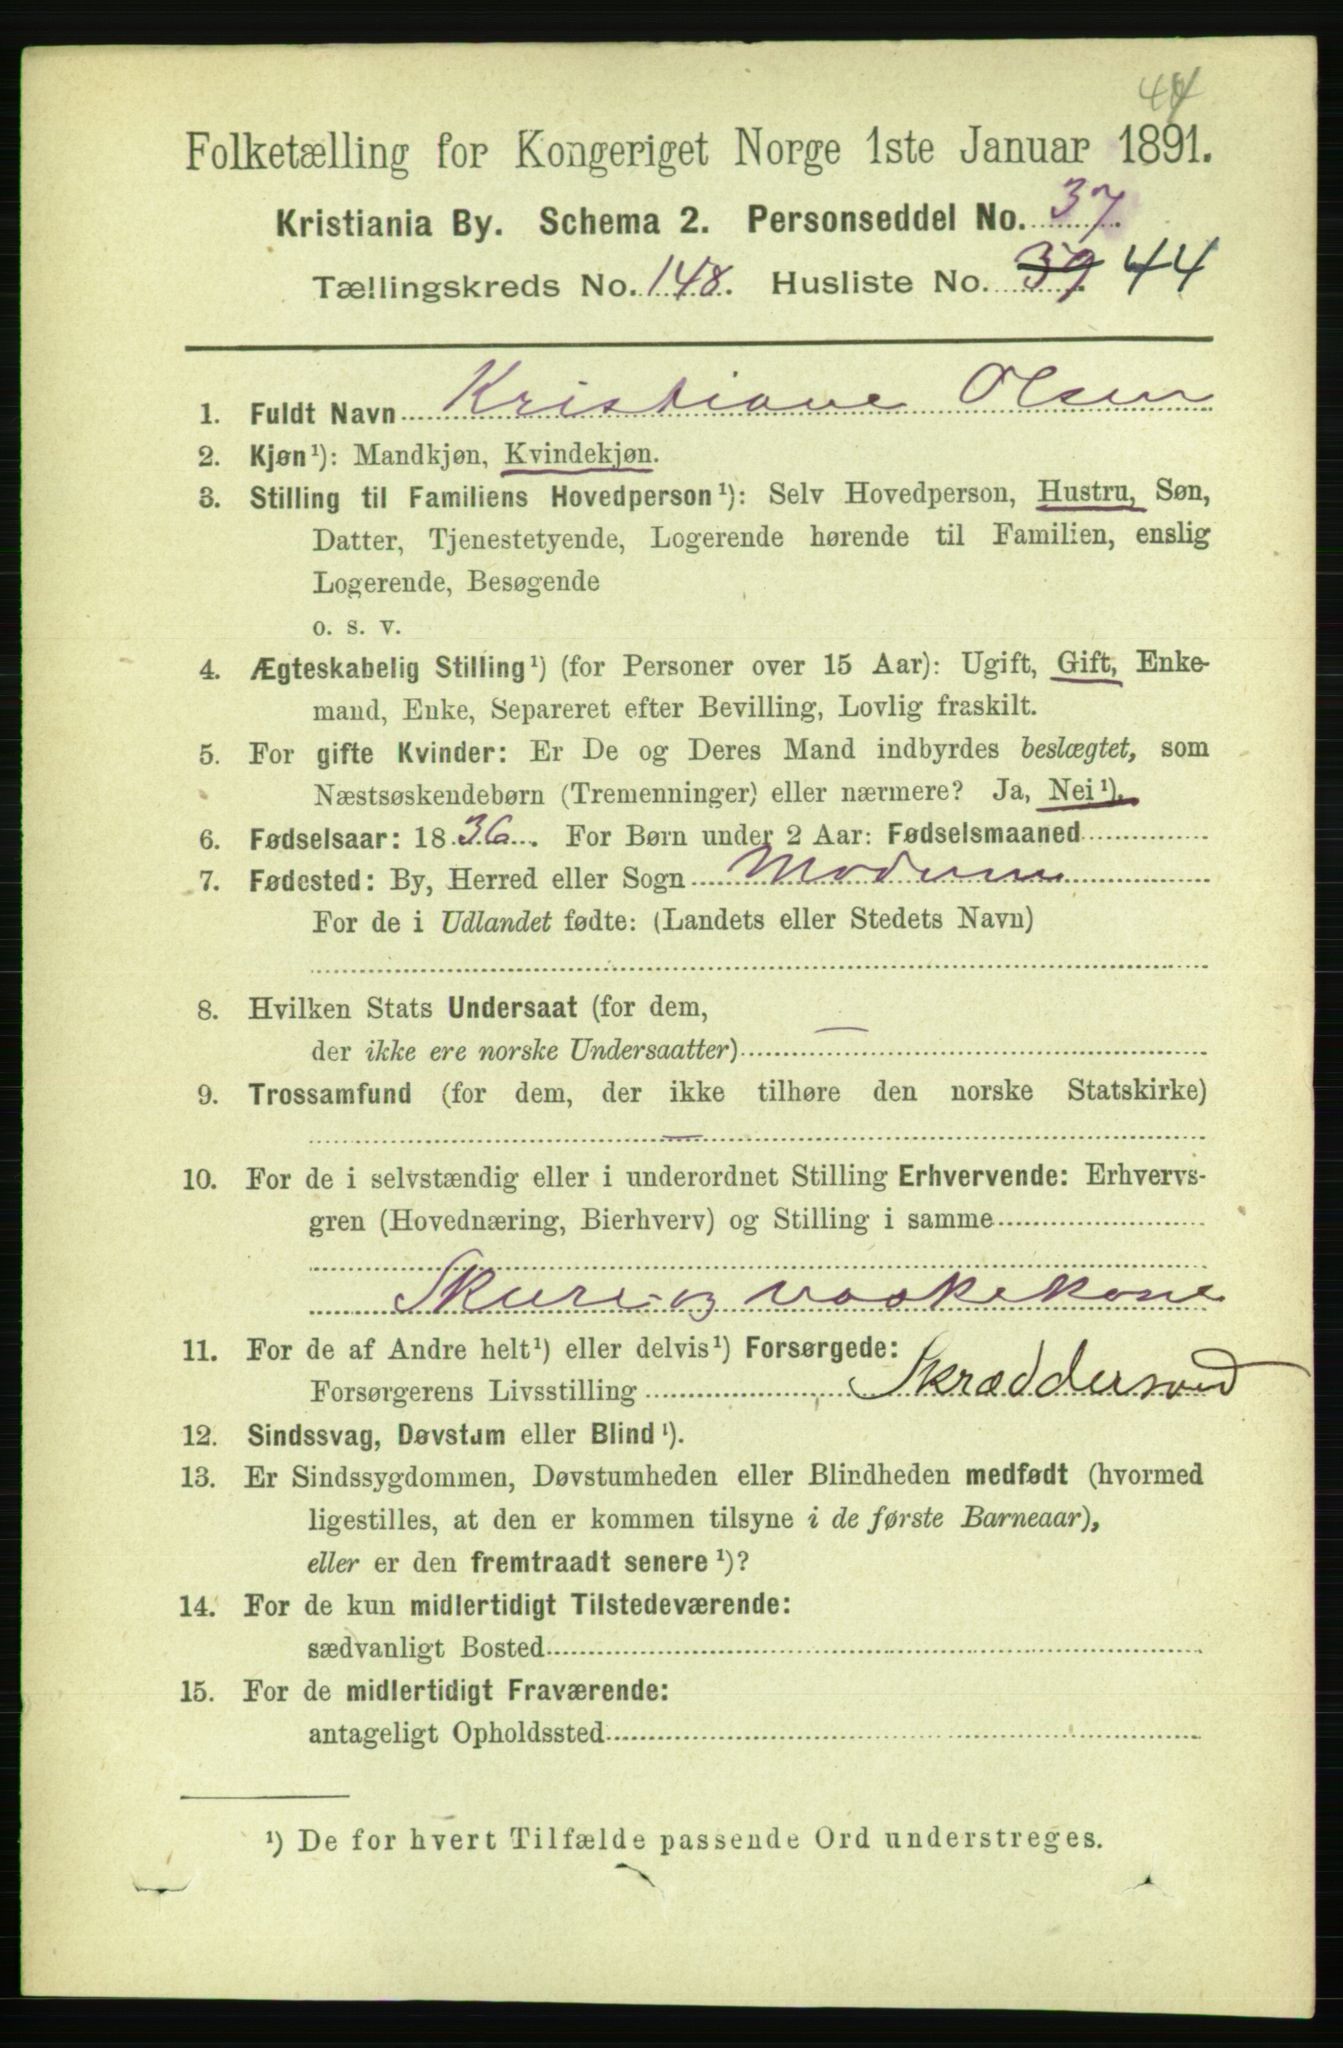 44
Folketælling for Kongeriget Norge 1ste Januar 1891.
Kristiania By. Schema 2. Personseddel No. 37.
Tællingskreds No. 148. Husliste No. 39 44
1. Fuldt Navn Kristiane Olsen
2. Kjøn¹): Mandkjøn, Kvindekjøn.
3. Stilling til Familiens Hovedperson¹): Selv Hovedperson, Hustru, Søn,
Datter, Tjenestetyende, Logerende hørende til Familien, enslig
Logerende, Besøgende
o. s. v.
4. Ægteskabelig Stilling¹) (for Personer over 15 Aar): Ugift, Gift, Enke-
mand, Enke, Separeret efter Bevilling, Lovlig fraskilt.
5. For gifte Kvinder: Er De og Deres Mand indbyrdes beslægtet, som
Næstsøskendebørn (Tremenninger) eller nærmere? Ja, Nei¹).
6. Fødselsaar: 1836. For Børn under 2 Aar: Fødselsmaaned
7. Fødested: By, Herred eller Sogn Modum
For de i Udlandet fødte: (Landets eller Stedets Navn)
8. Hvilken Stats Undersaat (for dem,
der ikke ere norske Undersaatter) —
9. Trossamfund (for dem, der ikke tilhøre den norske Statskirke)
—
10. For de i selvstændig eller i underordnet Stilling Erhvervende: Erhvervs-
gren (Hovednæring, Bierhverv) og Stilling i samme
Skure- og vaskekone
11. For de af Andre helt¹) eller delvis¹) Forsørgede:
Forsørgerens Livsstilling Skræddersvend
12. Sindssvag, Døvstum eller Blind¹).
13. Er Sindssygdommen, Døvstumheden eller Blindheden medfødt (hvormed
ligestilles, at den er kommen tilsyne i de første Barneaar),
eller er den fremtraadt senere¹)?
14. For de kun midlertidigt Tilstedeværende:
sædvanligt Bosted
15. For de midlertidigt Fraværende:
antageligt Opholdssted
¹) De for hvert Tilfælde passende Ord understreges.